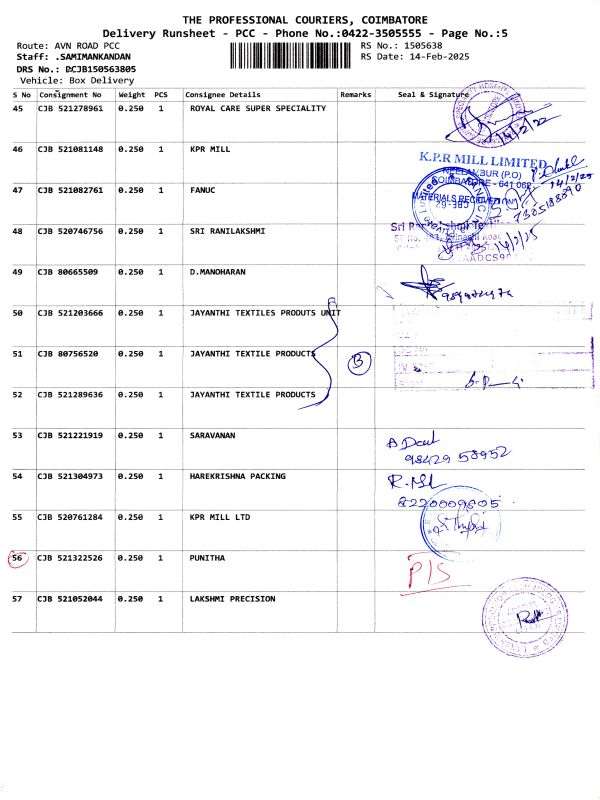 THE PROFESSIONAL COURIERS, COIMBATORE
Delivery Runsheet - PCC - Phone No.:0422-3505555 - Page No.:5
Route: AVN ROAD PCC RS No.: 1505638
Staff: .SAMIMANKANDAN RS Date: 14-Feb-2025
DRS No.: DCJB150563805
Vehicle: Box Delivery
S No Consignment No Weight PCS Consignee Details Remarks Seal & Signature
45 CJB 521278961 0.250 1 ROYAL CARE SUPER SPECIALITY
14/2/22
46 CJB 521081148 0.250 1 KPR MILL
K.P.R MILL LIMITED
NEELAMBUR (P.O)
COIMBATORE - 641 062
14/2/25
47 CJB 521082761 0.250 1 FANUC
MATERIALS RECEIVED
7385188890
48 CJB 520746756 0.250 1 SRI RANILAKSHMI
14/2/25
49 CJB 80665509 0.250 1 D.MANOHARAN
50 CJB 521203666 0.250 1 JAYANTHI TEXTILES PRODUTS UNIT
51 CJB 80756520 0.250 1 JAYANTHI TEXTILE PRODUCTS
3
52 CJB 521289636 0.250 1 JAYANTHI TEXTILE PRODUCTS
53 CJB 521221919 0.250 1 SARAVANAN
98429 58952
54 CJB 521304973 0.250 1 HAREKRISHNA PACKING
8220009805
55 CJB 520761284 0.250 1 KPR MILL LTD
56 CJB 521322526 0.250 1 PUNITHA
P/S
57 CJB 521052044 0.250 1 LAKSHMI PRECISION